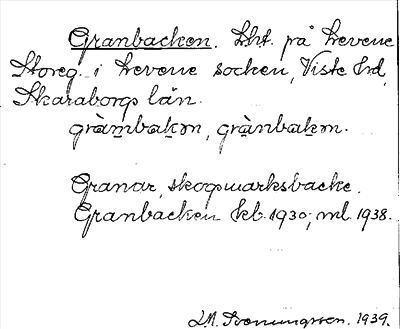 Granbacken. Lht. på Levene
Storeg. i Levene socken, Viste hd,
Skaraborgs län.
gràmbakǝn, grànbakǝn.
Granar, skogsmarksbacke.
Granbacken kb. 1930; ml. 1938.
1939.